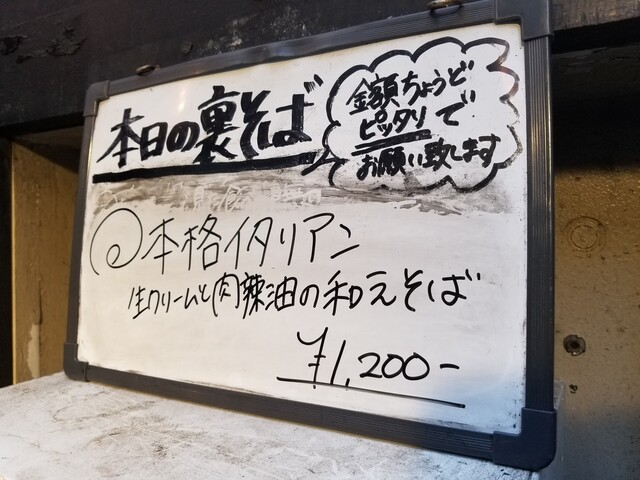 本日の裏そば
金額ちょうど
ピッタリで
お願い致します
本格イタリアン
生クリームと肉辣油の和えそば
¥1,200-